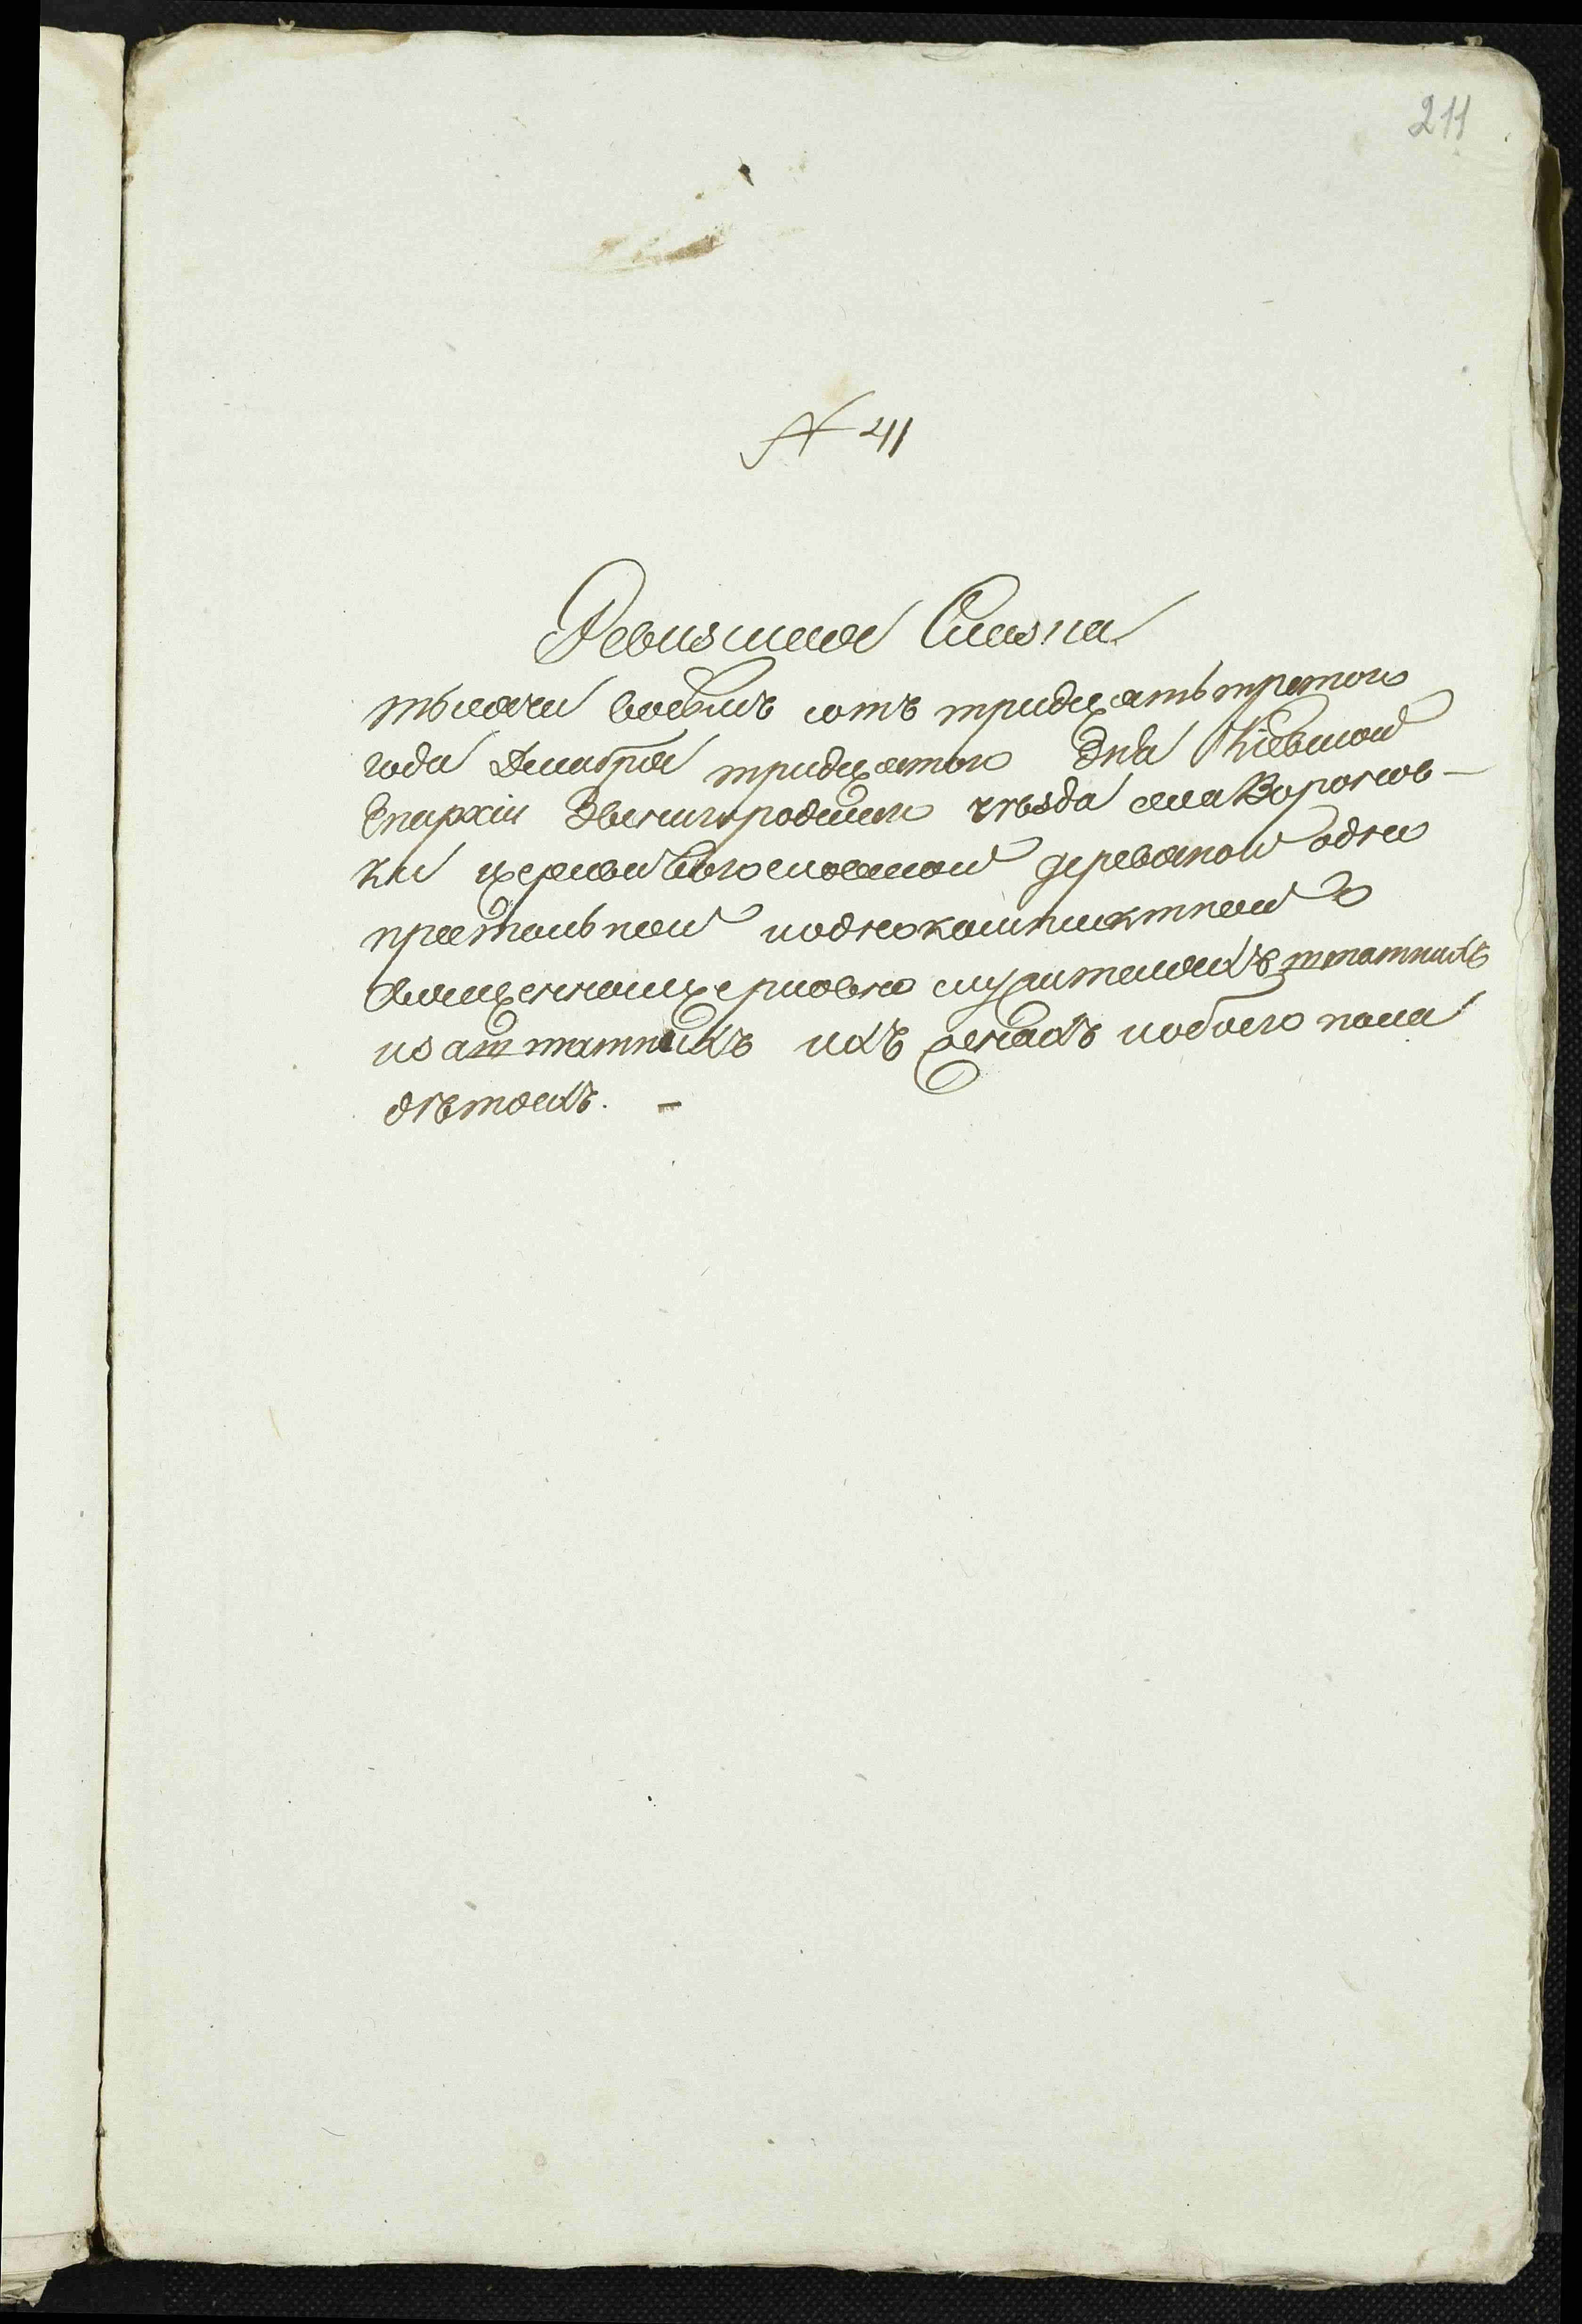 211
№ 41
Ревизская Сказка
тысяча восемь сотъ тридцать третого
года Декабря тридцатого дня Кіевской
Епархіи Звенигородского уѣзда села Воронов-
ки церкви Богословской деревяной одно
престольной и однокомплектной о
священноицерковно служителяхъ штатныхъ
и заштатныхъ ихъ женахъ и обоего пола
дѣтяхъ. -